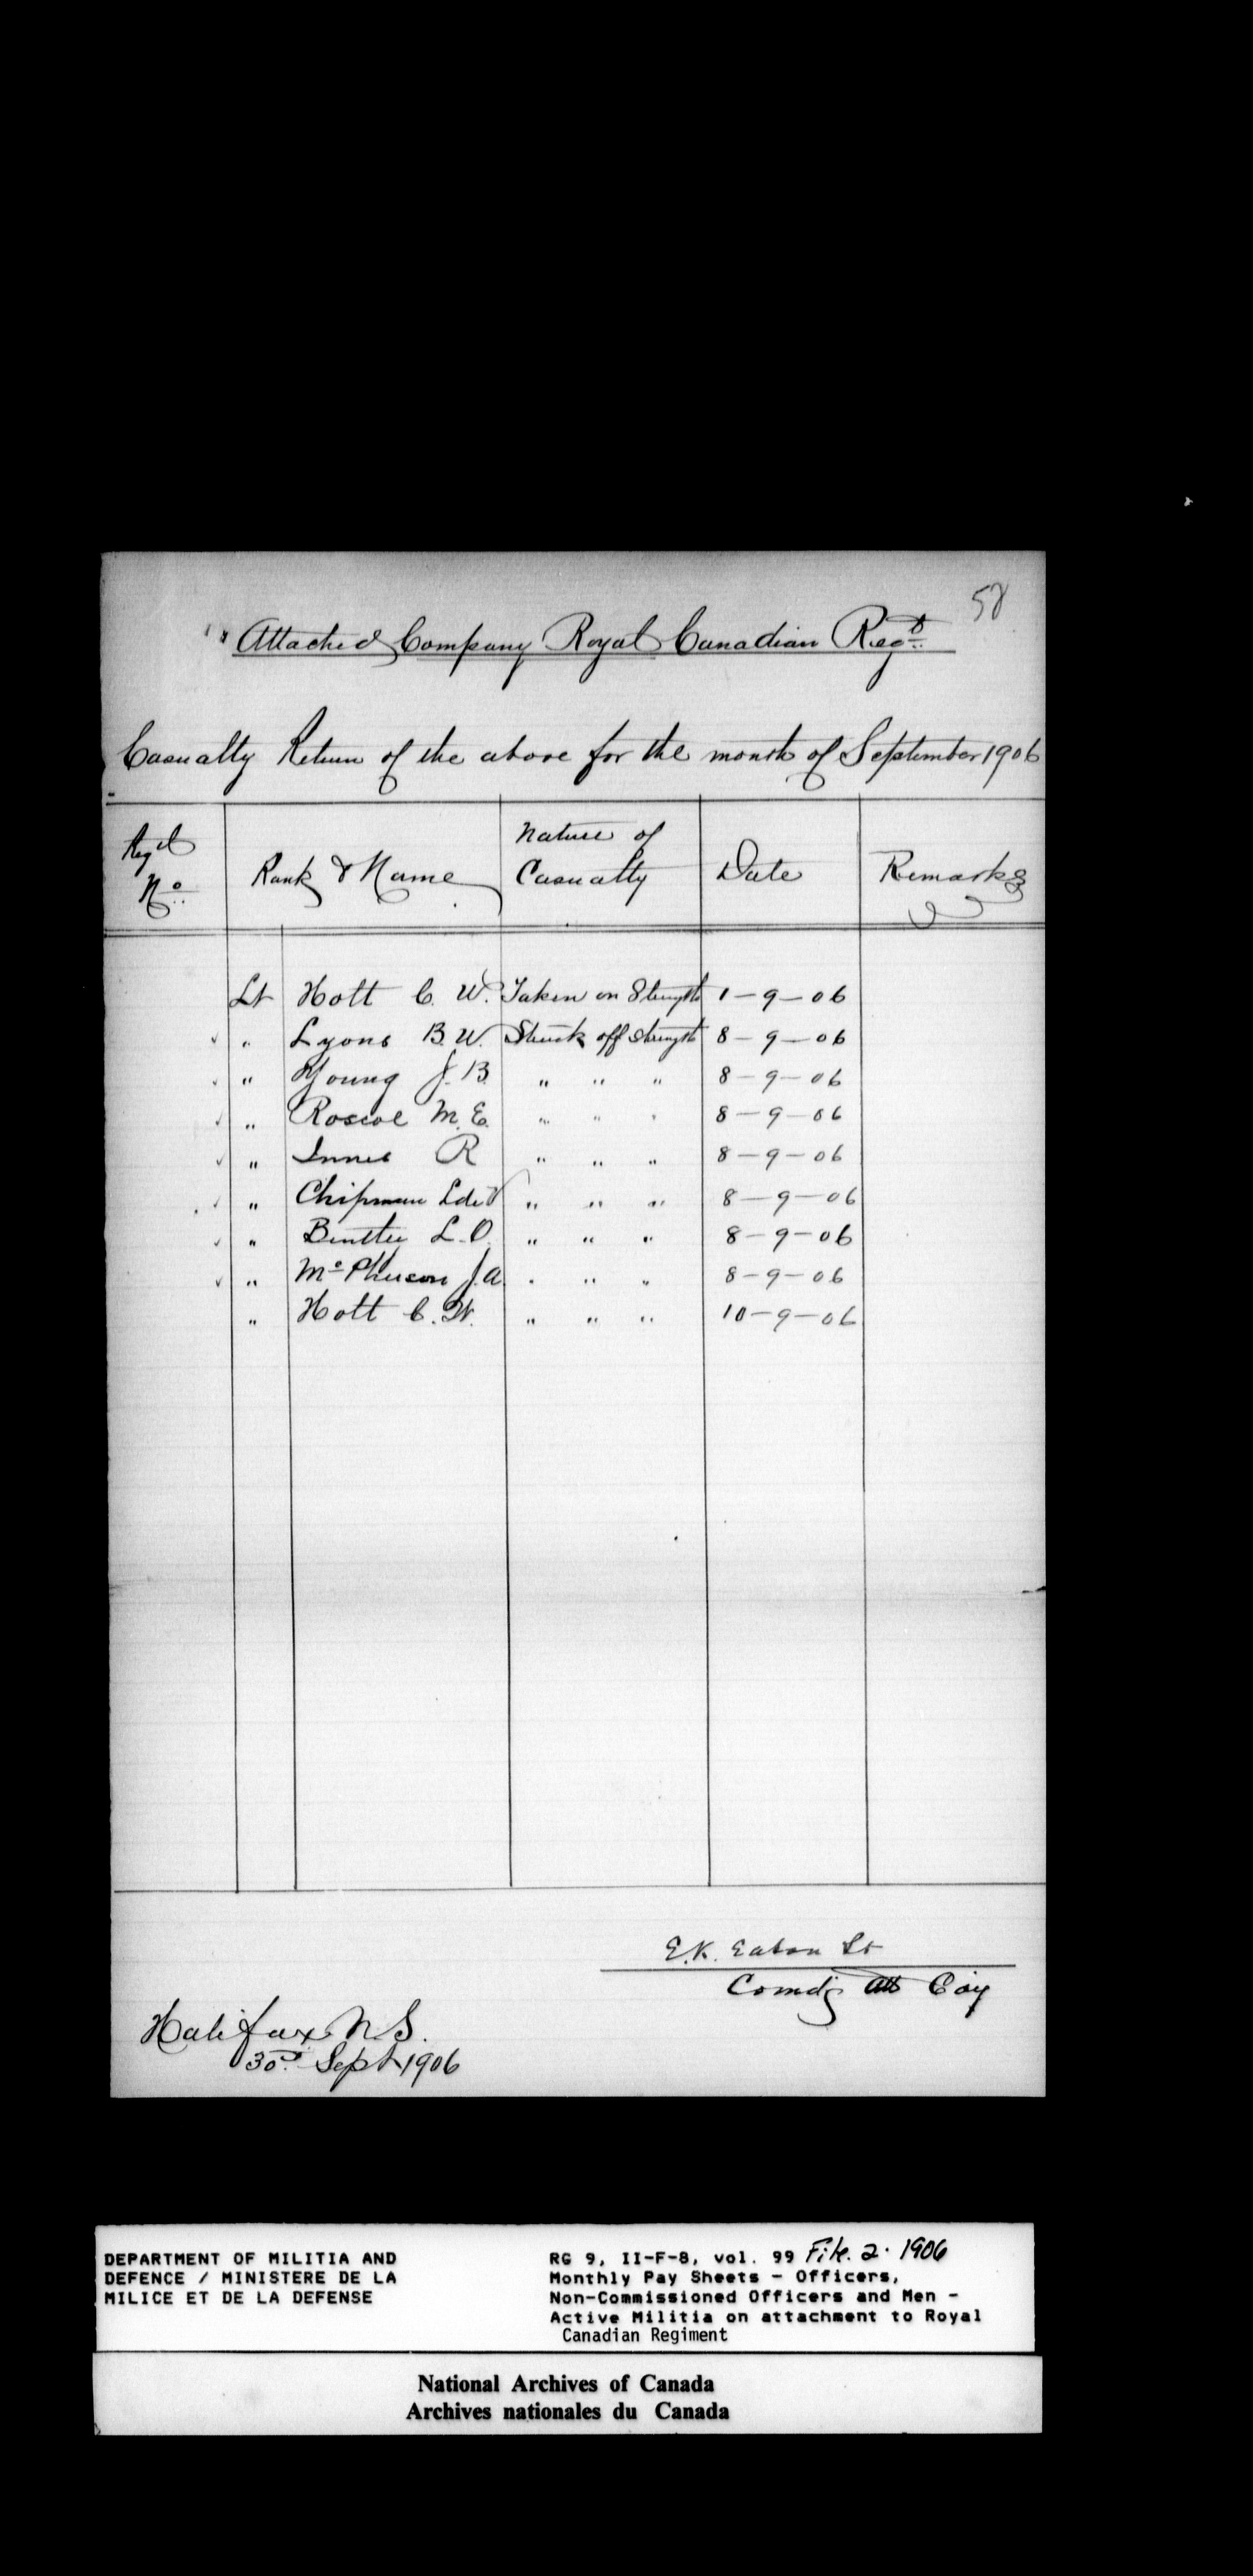 58
Attached Company Royal Canadian Regt.
Casualty Return of the above for the month of September 1906
Regtl No. Rank & Name Nature of Casualty Date Remarks
Lt Holt C. W. Taken on Strength 1-9-06
" Lyons B. W. Struck off Strength 8-9-06
" Young J. B. " " " 8-9-06
" Roscoe M. E. " " " 8-9-06
" Innes R " " " 8-9-06
" Chipman L de V " " " 8-9-06
" L. O. " " " 8-9-06
" McPherson J. A. " " " 8-9-06
" Holt C. W. " " " 10-9-06
E. K. Eaton Lt
Comdg Att Coy
Halifax N. S.
30th Sept 1906
DEPARTMENT OF MILITIA AND
DEFENCE / MINISTERE DE LA
MILICE ET DE LA DEFENSE
RG 9, II-F-8, vol. 99 File. 2. 1906
Monthly Pay Sheets - Officers,
Non-Commissioned Officers and Men -
Active Militia on attachment to Royal
Canadian Regiment
National Archives of Canada
Archives nationales du Canada